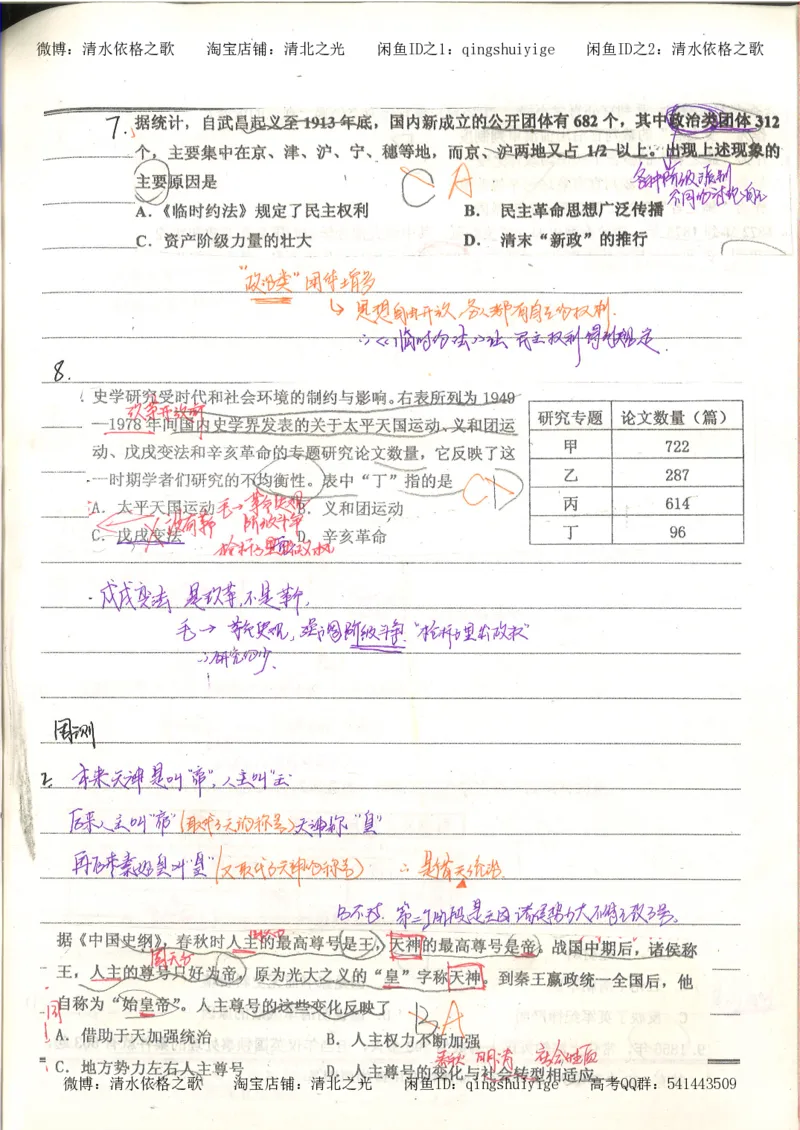 微博：清水依格之歌 淘宝店铺：清北之光 闲鱼ID之1：qingshuiyige 闲鱼ID之2：清水依格之歌
7. 据统计，自武昌起义至 1913 年底，国内新成立的公开团体有 682 个，其中政治类团体 312
个，主要集中在京、津、沪、宁、穗等地，而京、沪两地又占 1/2 以上。出现上述现象的
主要原因是
C A
A．《临时约法》规定了民主权利 B． 民主革命思想广泛传播
C．资产阶级力量的壮大 D． 清末“新政”的推行
“政治类”团体增多
↳ 思想自由开放，各人都有自己的权利.
∴《临时约法》 民主权利得到规定.
8.
史学研究受时代和社会环境的制约与影响。右表所列为 1949
改革开放前
—1978 年间国内史学界发表的关于太平天国运动、义和团运
动、戊戌变法和辛亥革命的专题研究论文数量，它反映了这
一时期学者们研究的不均衡性。表中“丁”指的是
C D
A．太平天国运动 B．义和团运动
C．戊戌变法 D．辛亥革命
毛→革命史观
阶级斗争
枪杆子里出政权
研究专题 论文数量（篇）
甲 722
乙 287
丙 614
丁 96
·戊戌变法 是改革，不是革命，
毛→ 革命史观，强调阶级斗争 “枪杆子里出政权”
∴研究的少.
周测
2. 本来天神是叫“帝”，人主叫“王”
后来人主叫“帝”（取代了天的称号）天神称“皇”
再后来秦始皇叫“皇”（又取代了天神的称号） ∴是借天统治.
只不过，第二个阶段是
据《中国史纲》，春秋时人主的最高尊号是王，天神的最高尊号是帝。战国中期后，诸侯称
王，人主的尊号只好为帝，原为光大之义的“皇”字称天神。到秦王嬴政统一全国后，他
自称为“始皇帝”。人主尊号的这些变化反映了
B A
A．借助于天加强统治 B．人主权力不断加强
C．地方势力左右人主尊号 D．人主尊号的变化与社会转型相适应
微博：清水依格之歌 淘宝店铺：清北之光 闲鱼ID：qingshuiyige 高考QQ群：541443509